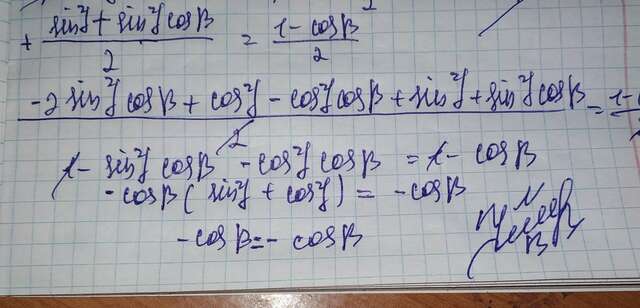 + (sin²y + sin²y cosβ)/2 = (1 - cosβ)/2
(-2 sin²y cosβ + cos²y - cos²y cosβ + sin²y + sin²y cosβ)/2 = (1-
1 - sin²y cosβ - cos²y cosβ = 1 - cosβ
- cosβ (sin²y + cos²y) = - cosβ
- cosβ = - cosβ